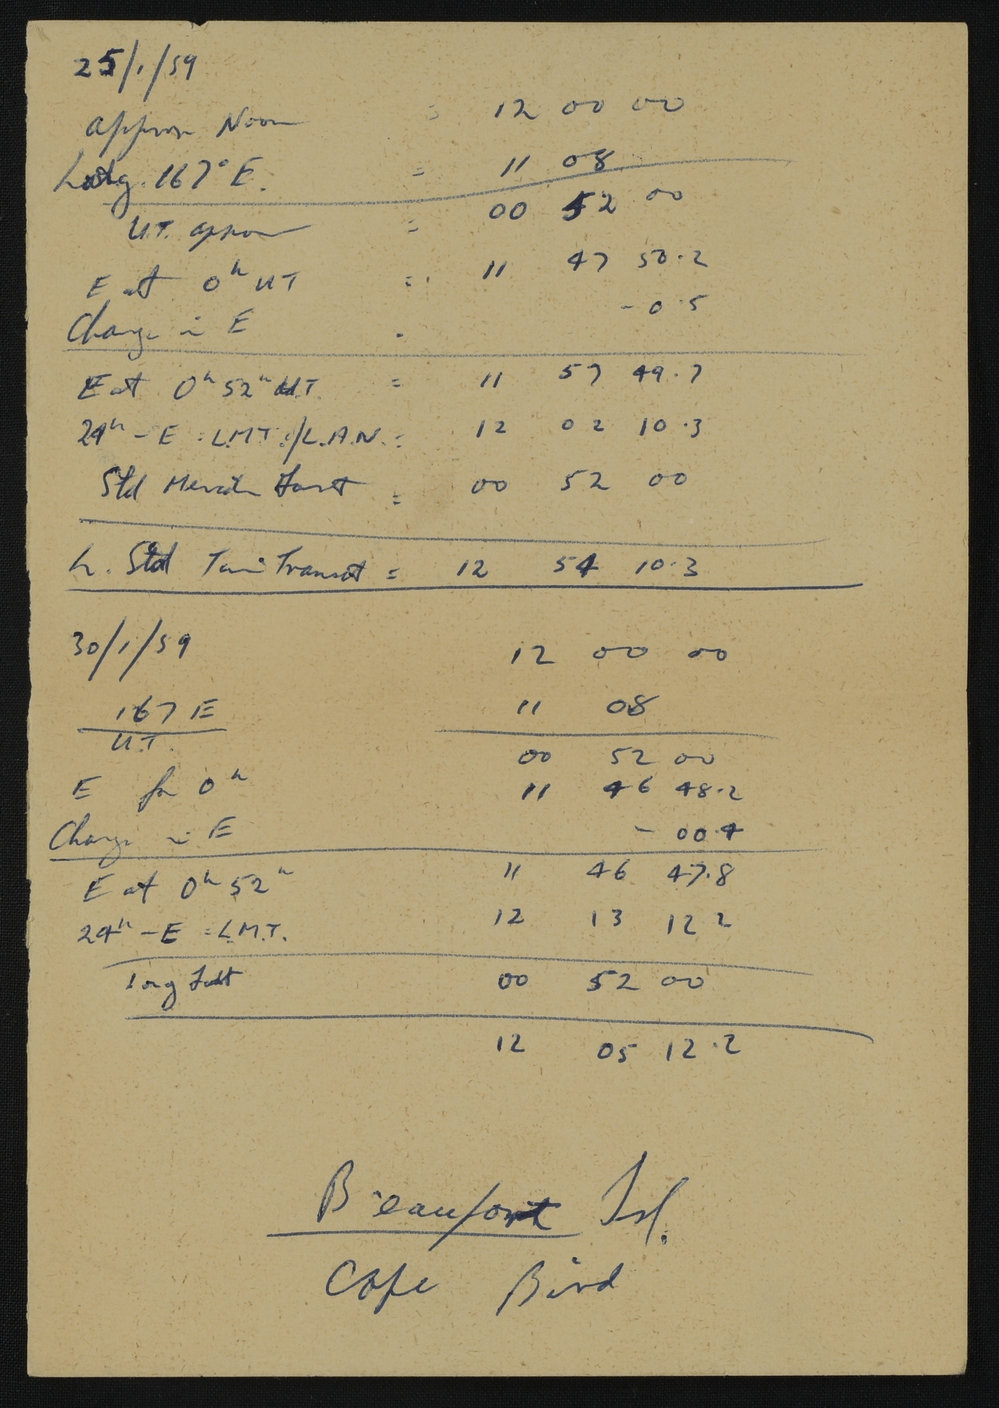 25/1/59
Approx Noon = 12 00 00
Longg. 167° E. = 11 08
U.T. approx = 00 52 00
E at 0h UT = 11 47 50.2
Change in E - 0.5
E at 0h 52m U.T. = 11 57 49.7
24h - E = L.M.T. / L.A.N. = 12 02 10.3
Std Meridn = 00 52 00
L. Std Time Transit = 12 54 10.3
30/1/59 12 00 00
167 E 11 08
U.T. 00 52 00
E for 0h 11 46 48.2
Change in E - 00.4
E at 0h 52m 11 46 47.8
24h - E = L.M.T. 12 13 12 2
Long 00 52 00
12 05 12.2
Beaufort Isl.
Cape Bird